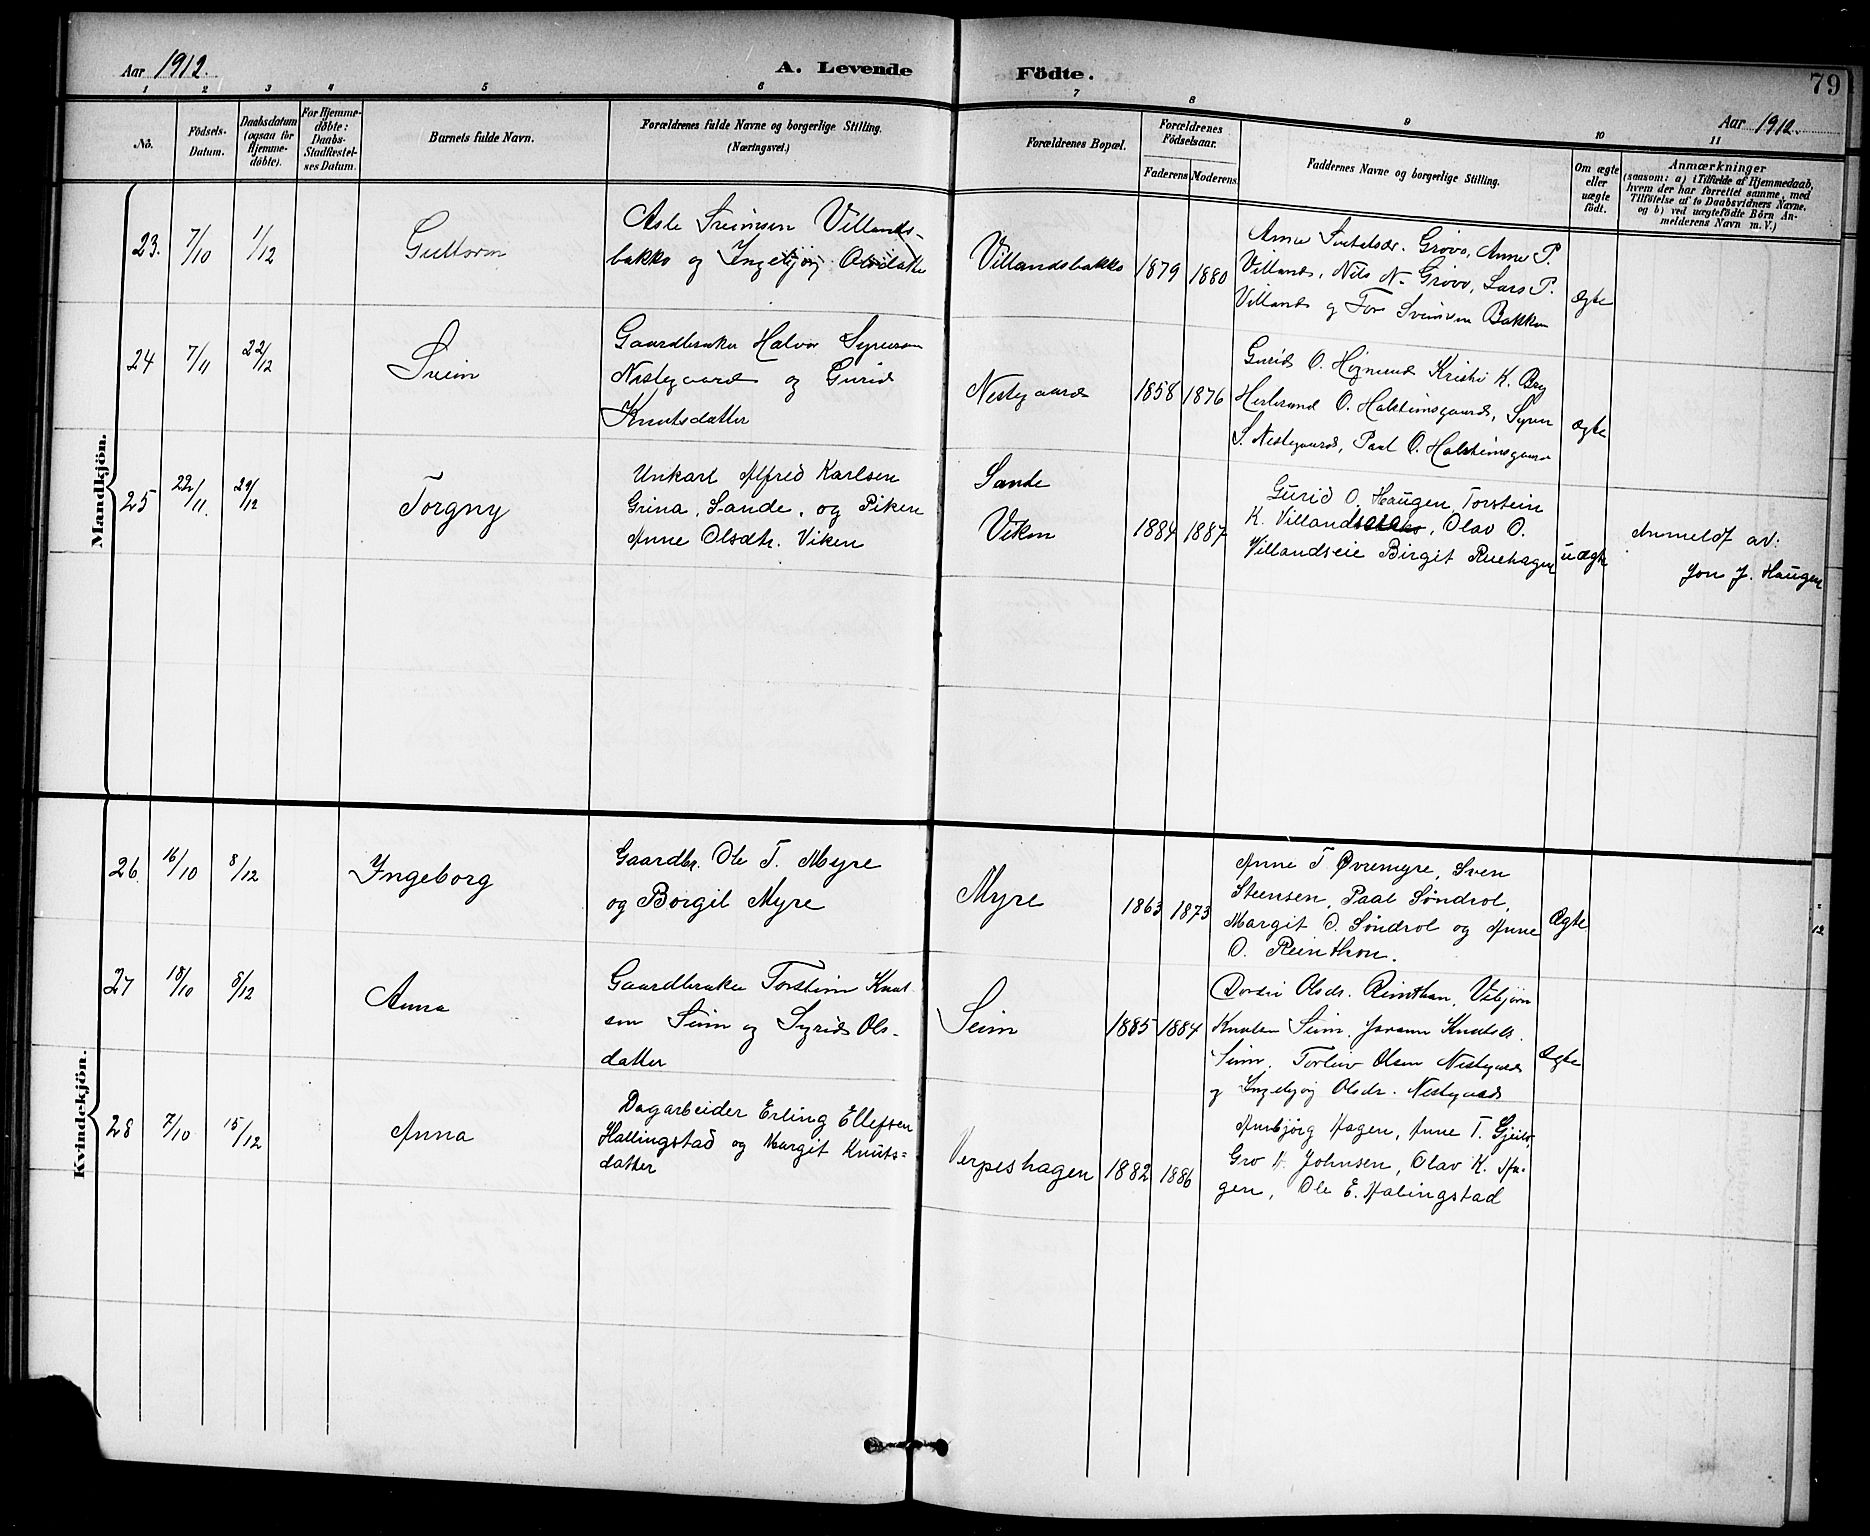 Aar 1912.
A. Levende Födte.
79
Aar 1912.
1 2 3 4 5 6 7 8 9 10 11
No.
Födsels-Datum.
Daabsdatum (ogsaa for Hjemme-døbte).
For Hjemme-døbte: Daabs-Stadfæstel-ses Datum.
Barnets fulde Navn.
Forældrenes fulde Navne og borgerlige Stilling.
(Næringsvei.)
Forældrenes Bopæl.
Forældrenes Födselsaar.
Faderens Moderens
Faddernes Navne og borgerlige Stilling.
Om ægte eller uægte født.
Anmærkninger
(saasom: a) i Tilfælde af Hjemmedaab,
hvem der har forrettet samme, med
Tilføielse af to Daabsvidners Navne,
og b) ved uægtefødte Börn An-
melderens Navn m. V.)
Mandkjön.
23. 7/10 1/12
Guttorm
Asle Sveinsen Villands-
bakko og Ingebjørg
Villandsbakko
1879 1880
Anne Grøvo, Anne P.
Villand, Nils N. Grøvo, Lars P.
Villand og Tor Sveinsen Bakken
Ægte
24 7/11 22/12
Svein
Gaardbruker Halvor Syversen
Nestegaard og Gurid
Knutsdatter
Nestegaard
1858 1876
Gurid O. Kristi K.
Herbrand O. Halsteinsgaard, Syver
S. Nestegaard, Paal O. Halsteinsgaard
Ægte
25 22/11. 29/12
Torgny
Unkarl Alfred Karlsen
Grina, Sande, og Piken
Anne Olsdtr. Viken
Sande
Viken
1884 1887
Gurid O. Haugen, Torstein
K. Villand, Olav O.
Villandseie Birgit Ruehagen
uægte
Anmeldt av:
Jon J. Haugen
Kvindekjön.
26. 16/10 8/12
Ingeborg
Gaardbr. Ole T. Myre
og Borgil Myre
Myre
1863 1873
Anne T. Øvremyre, Sven
Steensen, Paal Søndrol,
Margit O. Søndrol og Anne
O. Reinthon.
Ægte
27 18/10 8/12
Anna
Gaardbruker Torstein Knut-
sen Seim og Syrid Ols-
datter
Seim
1885 1884
Olsdr. Reinthon, Vebjørn
Knutsen Seim, Knutsdr.
Seim, Torleiv Olsen Nestegaard
og Ingebjørg Olsdr. Nestegaard
Ægte
28 7/10 15/12
Anna
Dagarbeider Erling Ellefsen
Hallingstad og Margit Knuts=
datter
Verpeshagen
1882 1886
Annbjörg Hagen, Anne T. Gjeilo,
Gro K. Johnsen, Olav K. Ha-
gen, Ole E. Halingstad